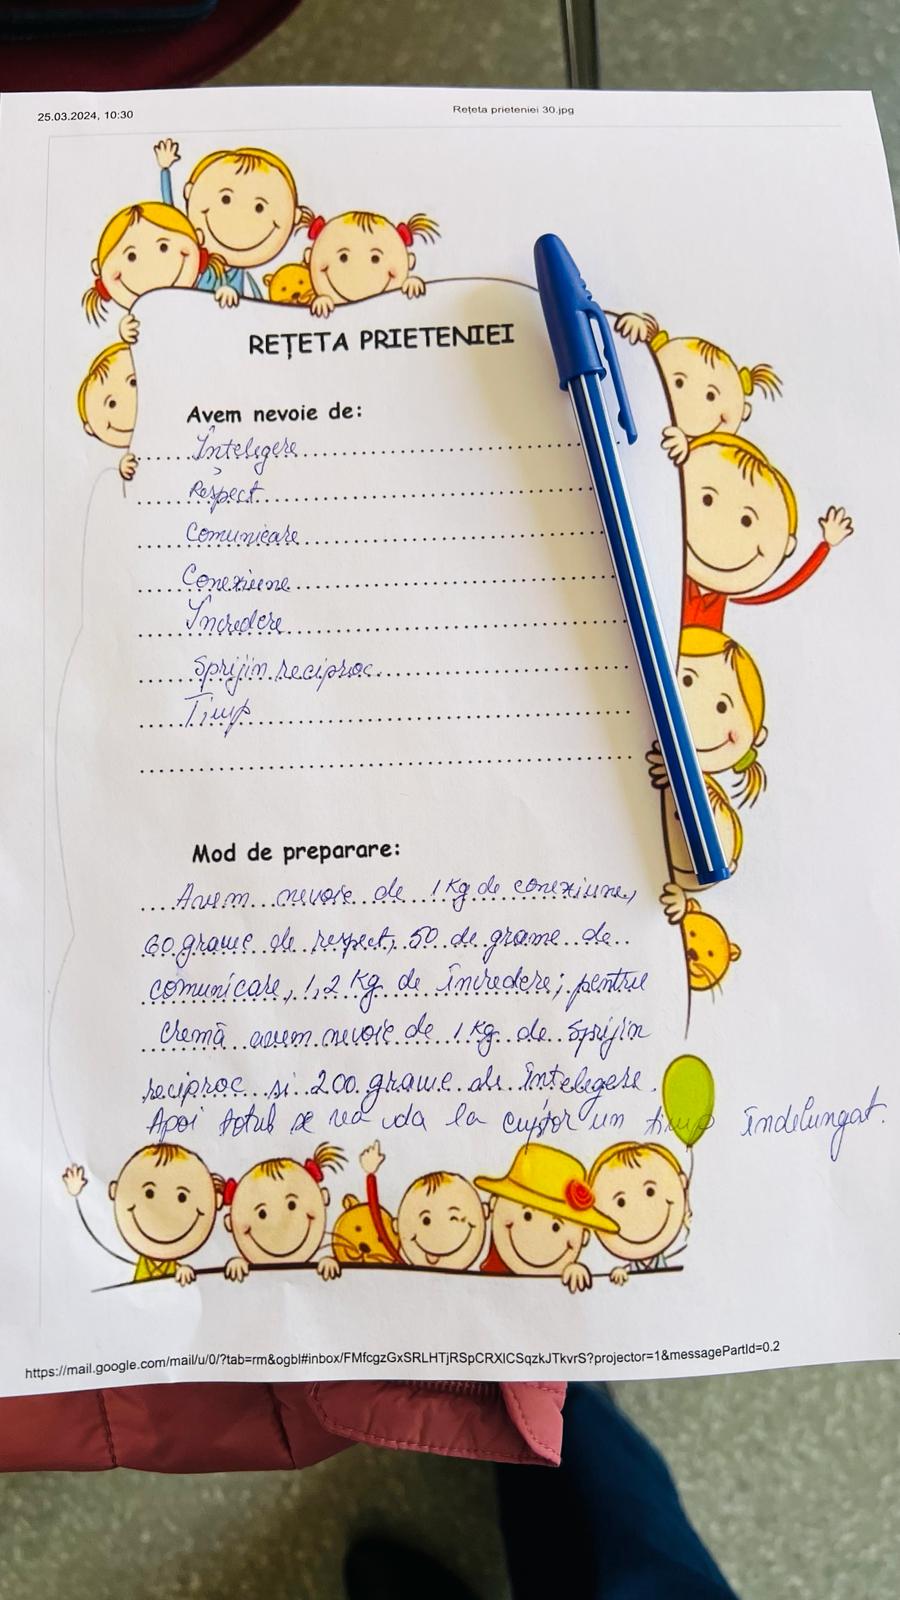 25.03.2024, 10:30
Rețeta prieteniei 30.jpg
REȚETA PRIETENIEI
Avem nevoie de:
Înțelegere
Respect
Comunicare
Conexiune
Încredere
Sprijin reciproc
Timp
Mod de preparare:
Avem nevoie de 1 Kg de conexiune,
60 grame de respect, 50 de grame de
comunicare, 1,2 Kg de încredere; pentru
Cremă avem nevoie de 1 Kg de Sprijin
reciproc si 200 grame de întelegere.
Apoi totul se va da la cuptor un timp îndelungat.
https://mail.google.com/mail/u/0/?tab=rm&ogbl#inbox/FMfcgzGxSRLHTjRSpCRXlCSqzkJTkvrS?projector=1&messagePartId=0.2